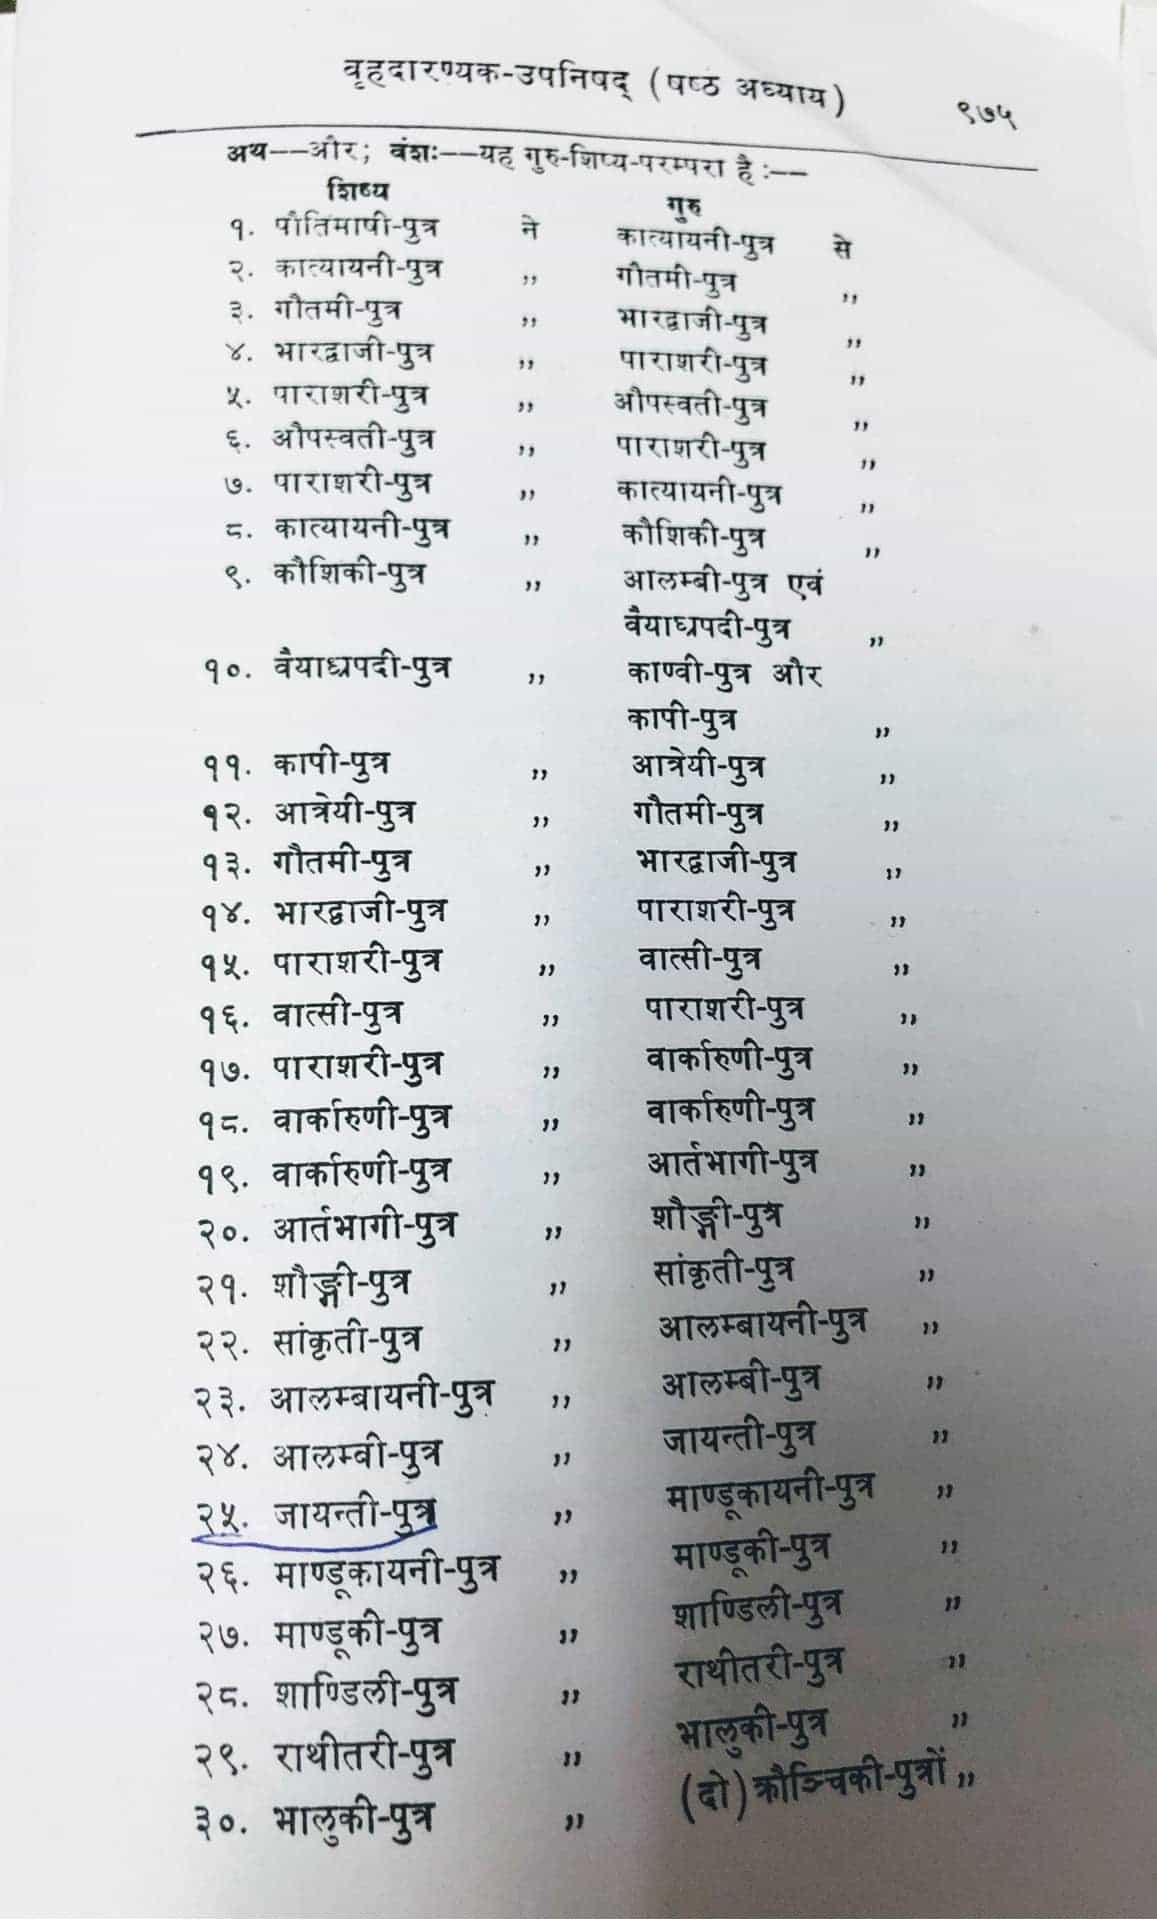 वृहदारण्यक-उपनिषद् (षष्ठ अध्याय) ९७५
अथ--और; वंशः--यह गुरु-शिष्य-परम्परा है :--
शिष्य गुरु
१. पौतिमाषी-पुत्र ने कात्यायनी-पुत्र से
२. कात्यायनी-पुत्र ,, गौतमी-पुत्र ,,
३. गौतमी-पुत्र ,, भारद्वाजी-पुत्र ,,
४. भारद्वाजी-पुत्र ,, पाराशरी-पुत्र ,,
५. पाराशरी-पुत्र ,, औपस्वती-पुत्र ,,
६. औपस्वती-पुत्र ,, पाराशरी-पुत्र ,,
७. पाराशरी-पुत्र ,, कात्यायनी-पुत्र ,,
८. कात्यायनी-पुत्र ,, कौशिकी-पुत्र ,,
९. कौशिकी-पुत्र ,, आलम्बी-पुत्र एवं
वैयाघ्रपदी-पुत्र ,,
१०. वैयाघ्रपदी-पुत्र ,, काण्वी-पुत्र और
कापी-पुत्र ,,
११. कापी-पुत्र ,, आत्रेयी-पुत्र ,,
१२. आत्रेयी-पुत्र ,, गौतमी-पुत्र ,,
१३. गौतमी-पुत्र ,, भारद्वाजी-पुत्र ,,
१४. भारद्वाजी-पुत्र ,, पाराशरी-पुत्र ,,
१५. पाराशरी-पुत्र ,, वात्सी-पुत्र ,,
१६. वात्सी-पुत्र ,, पाराशरी-पुत्र ,,
१७. पाराशरी-पुत्र ,, वार्कारुणी-पुत्र ,,
१८. वार्कारुणी-पुत्र ,, वार्कारुणी-पुत्र ,,
१९. वार्कारुणी-पुत्र ,, आर्तभागी-पुत्र ,,
२०. आर्तभागी-पुत्र ,, शौङ्गी-पुत्र ,,
२१. शौङ्गी-पुत्र ,, सांकृती-पुत्र ,,
२२. सांकृती-पुत्र ,, आलम्बायनी-पुत्र ,,
२३. आलम्बायनी-पुत्र ,, आलम्बी-पुत्र ,,
२४. आलम्बी-पुत्र ,, जायन्ती-पुत्र ,,
२५. जायन्ती-पुत्र ,, माण्डूकायनी-पुत्र ,,
२६. माण्डूकायनी-पुत्र ,, माण्डूकी-पुत्र ,,
२७. माण्डूकी-पुत्र ,, शाण्डिली-पुत्र ,,
२८. शाण्डिली-पुत्र ,, राथीतरी-पुत्र ,,
२९. राथीतरी-पुत्र ,, भालुकी-पुत्र ,,
३०. भालुकी-पुत्र ,, (दो) क्रौञ्चिकी-पुत्रों ,,